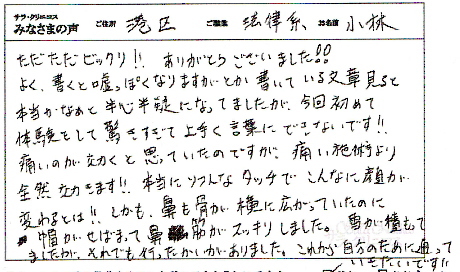 サラ・クリニコス
みなさまの声 ご住所 港区 ご職業 法律系 お名前 小林
ただただビックリ!! ありがとうございました!!
よく、書くと嘘っぽくなりますがとか書いている文章見ると
本当かなぁと半心半疑になってましたが、今回初めて
体験をして驚きすぎて上手く言葉にできないです!!
痛いのが効くと思っていたのですが、痛い施術より
全然効きます!! 本当にソフトなタッチでこんなに顔が
変わるとは!! しかも、鼻も骨が横に広がっていたのに
幅がせばまって鼻筋がスッキリしました。雪が積もって
ましたが、それでも行ったかいがありました。これから自分のために通って
いきたいです!!